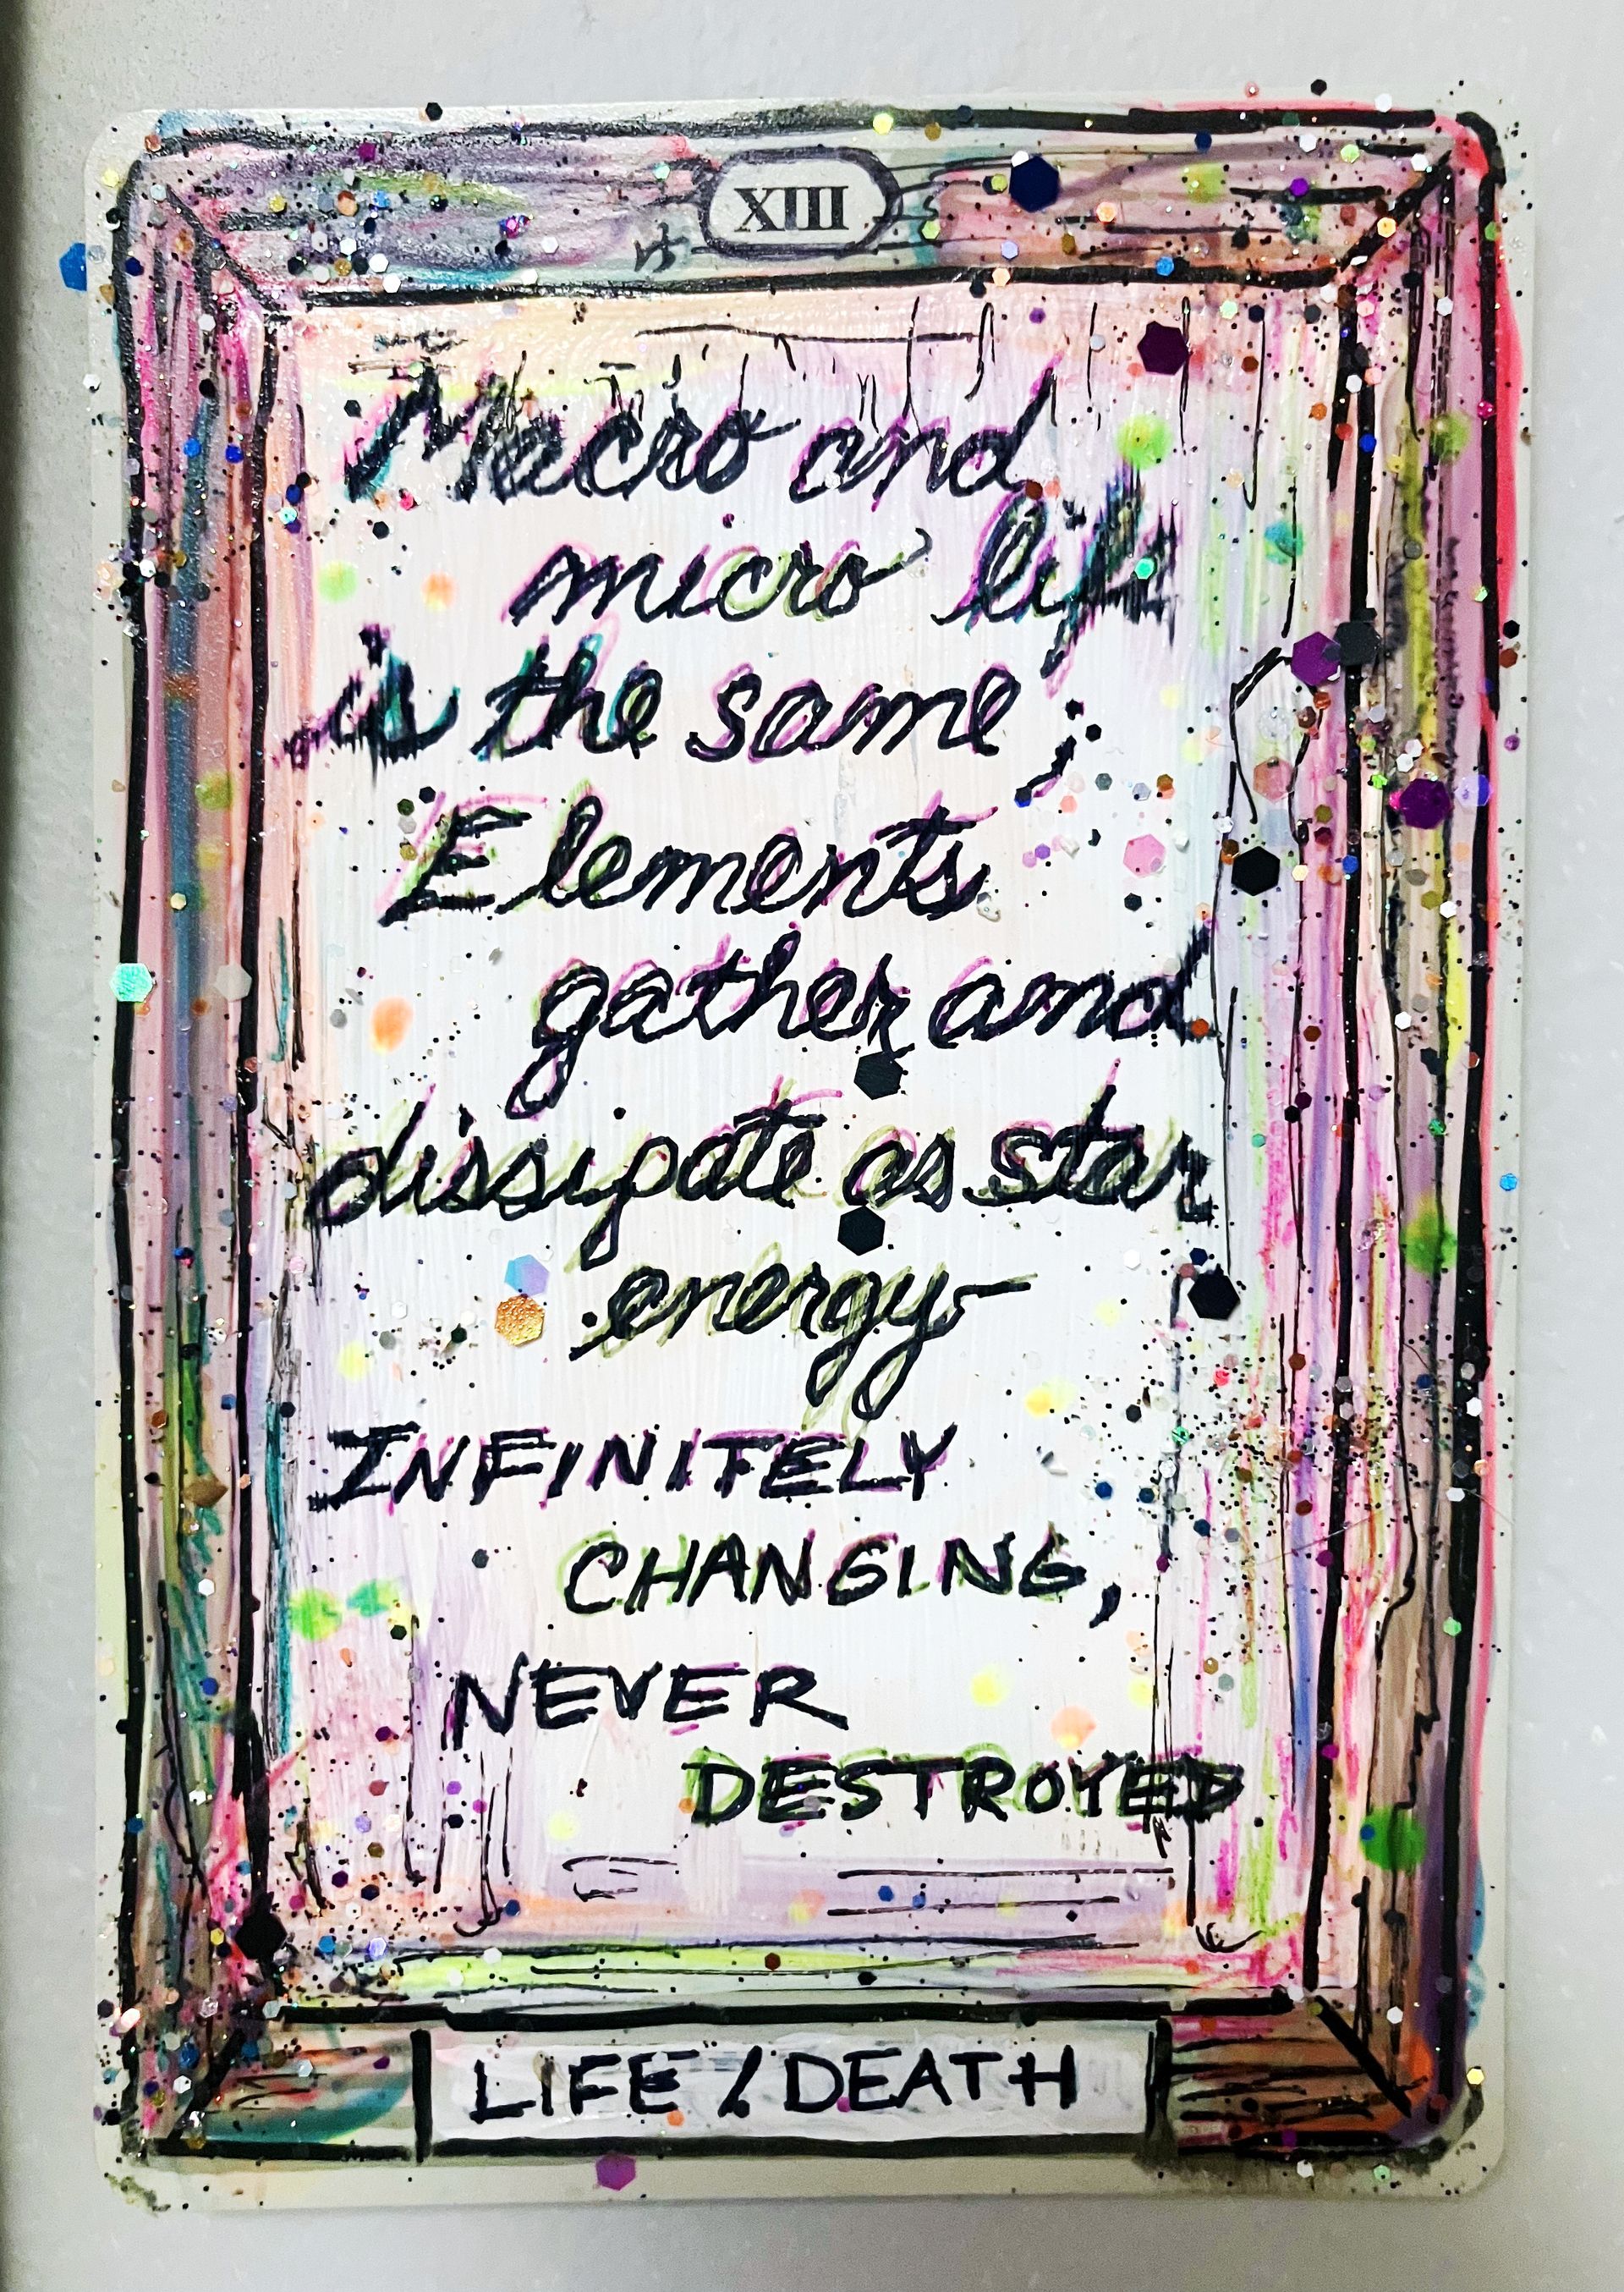 XIII
Macro and
micro life
is the same;
Elements
gather and
dissipate as star
energy-
INFINITELY
CHANGING,
NEVER
DESTROYED
LIFE / DEATH